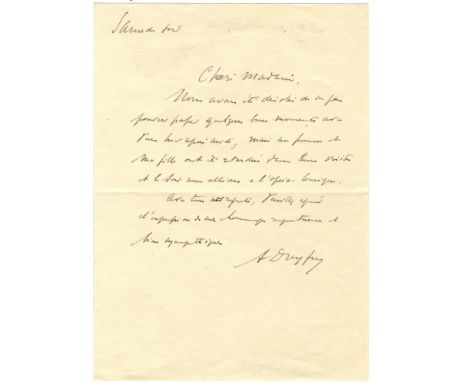 Samedi soir
Chère Madame,
Nous avons été désolés de ne pas
pouvoir passer quelques bons moments avec
vous hier après midi, mais ma femme et
ma fille ont été retardées dans leurs visites
et le soir nous allions à l'opéra-comique.
Avec tous nos regrets, veuillez agréer
l'expression de mes hommages respectueux et
bien sympathiques
A Dreyfus